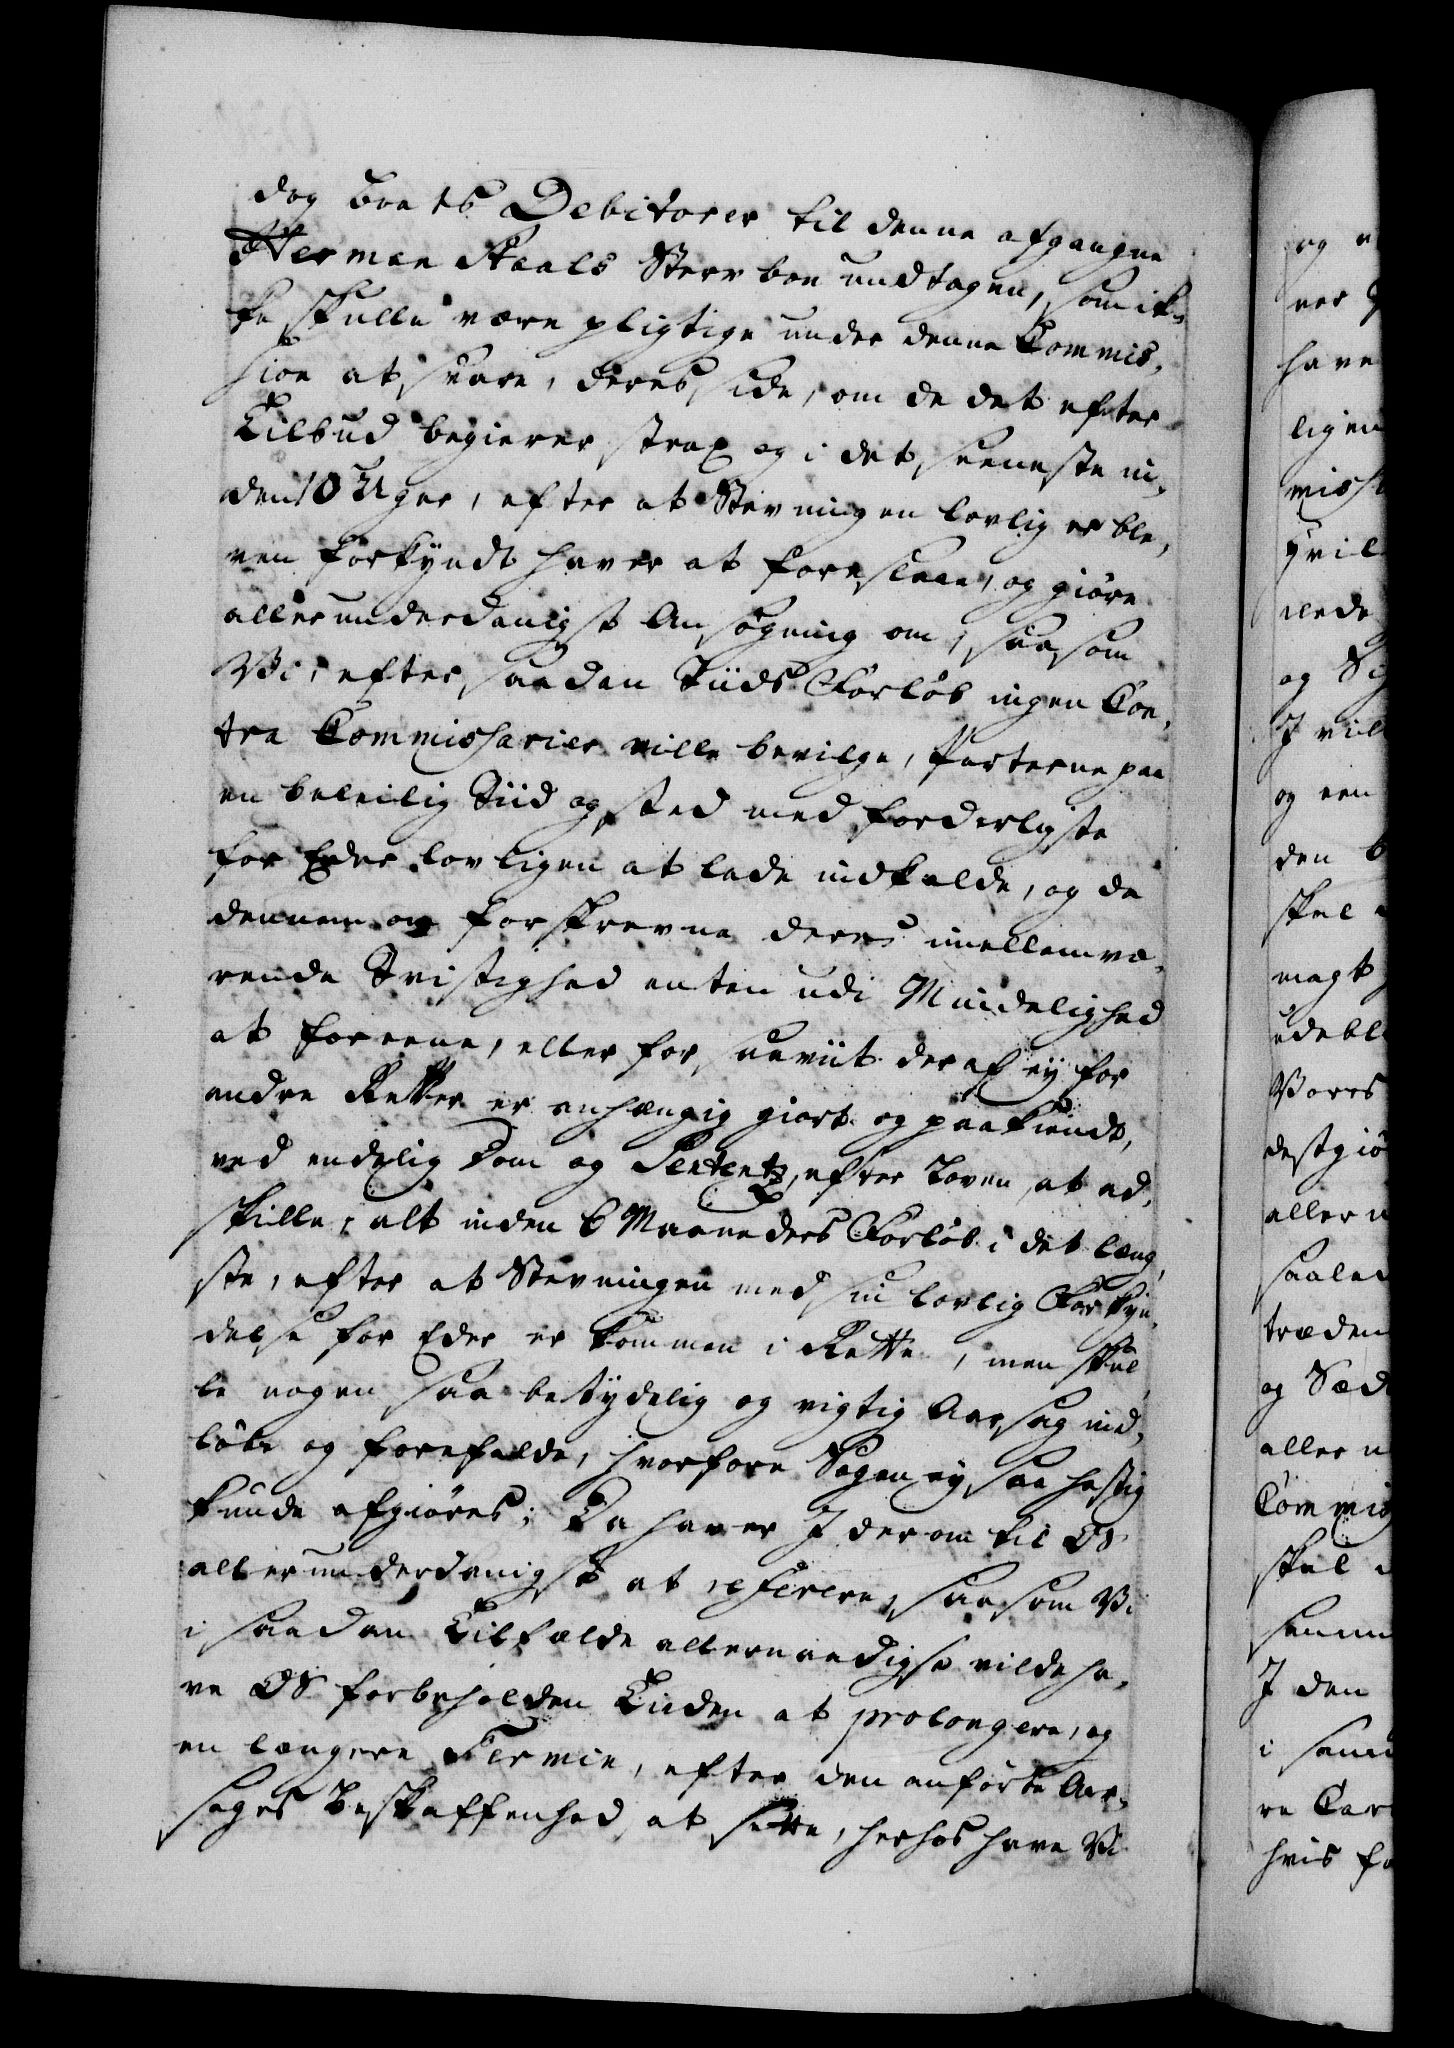 dog boets Debitorer til denne afgangne
Herman Raals Sterv boe undtagen, som ik¬
ke skulle være pligtige under denne Commis¬
sion at svare, deres side, om de det efter
Tilbud begierer, strax og i det seeneste in¬
den 10 Uger, efter at Stevningen lovlig er ble¬
ven forkyndt haver at foreslaae, og giøre
allerunderdanigst Ansøgning om, saasom
Vi, efter saadan Tiids Forløb ingen Con¬
tra Commissarier ville bevilge, Parterne paa
en beleilig Tiid og sted med forderligste
for Eder lovligen at lade indkalde, og de
dennem og forskrevne deres imellemvæ¬
rende Tvistighed enten udi Mindelighed
at foreene, eller for saaviit deraf ey for
andre Retter er anhængig giort og paakiendt,
ved endelig Dom og Sententz, efter Loven, at ad¬
skille, alt inden 6 Maaneders Forløb i det læng¬
ste, efter at Stevningen med sin lovlig Forkyn¬
delse for Eder er kommen i Rette, men skul¬
le nogen saa betydelig og vigtig Aarsag ind¬
løbe og forefalde, hvorfore Sagen ey saa hastig
kunde afgiøres; Da haver I derom til OS
allerunderdanigst at referere, saasom Vi
i saadan Tilfælde allernaadigst vilde ha¬
ve OS forbeholden Tiiden at prolongere, og
en længere Termin, efter den anførte Aar¬
sages Beskaffenhed, at sætte, herhos have Vi